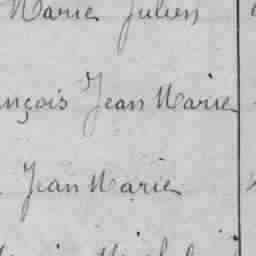 Marie Julien
nçois Jean Marie
Jean Marie